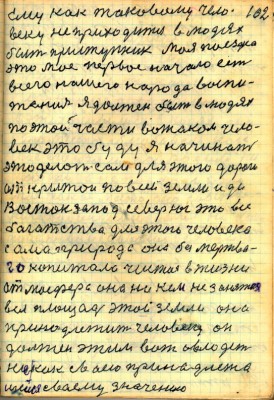 ему как таковому чело- 102.
веку не приходится в людях
быть приступник моя поездка
это мое первое начало от
всего нашего народа воспи-
тания я должен быть в людях
по этой части в таком чело-
век это буду я начинат
это делот сам для этого дороги
открытои по всей земли иди
восток запад север юг это все
багатства для этого человека
сама природа она бе мертва-
го копитала чистая в жизни
атмосфера она ни кем не занятоя
вся площадь этой земли она
принадлежит человеку он
должен этим вот овлодет
как своею принадлежа
сваему значению